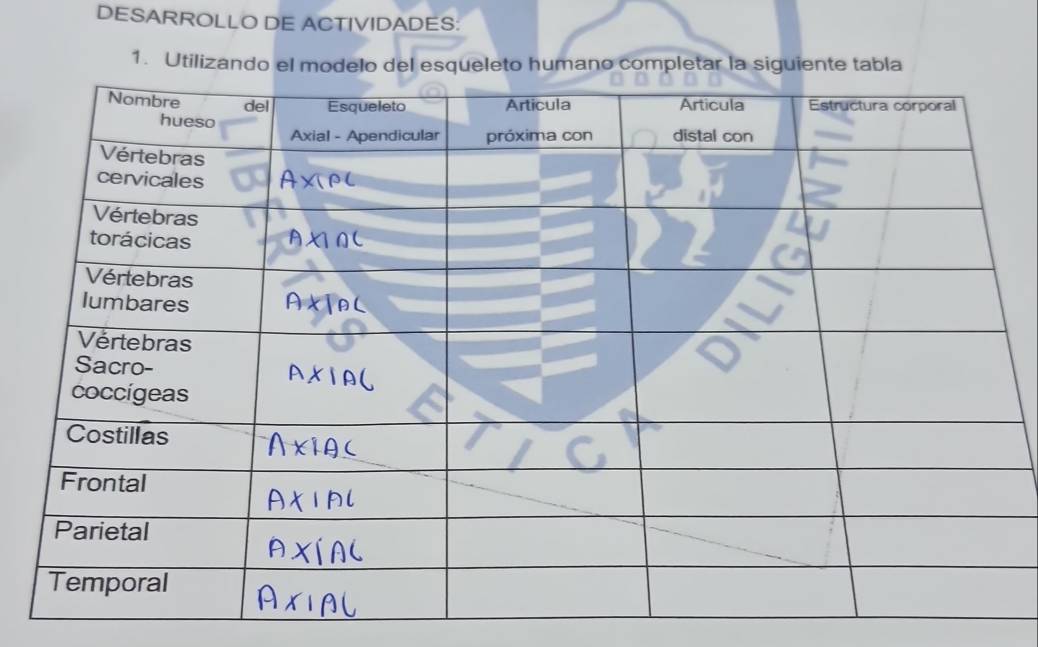 DESARROLLO DE ACTIVIDADES:
1. Utilizando el modelo del esqueleto humano completar la siguiente tabla
Nombre del hueso
Esqueleto Axial - Apendicular
Articula próxima con
Articula distal con
Estructura corporal
Vértebras cervicales
AXIAL
Vértebras torácicas
AXIAL
Vértebras lumbares
AXIAL
Vértebras Sacro-coccígeas
AXIAL
Costillas
AXIAL
Frontal
AXIAL
Parietal
AXIAL
Temporal
AXIAL
LIBERTAS ETICA DILIGENTIA